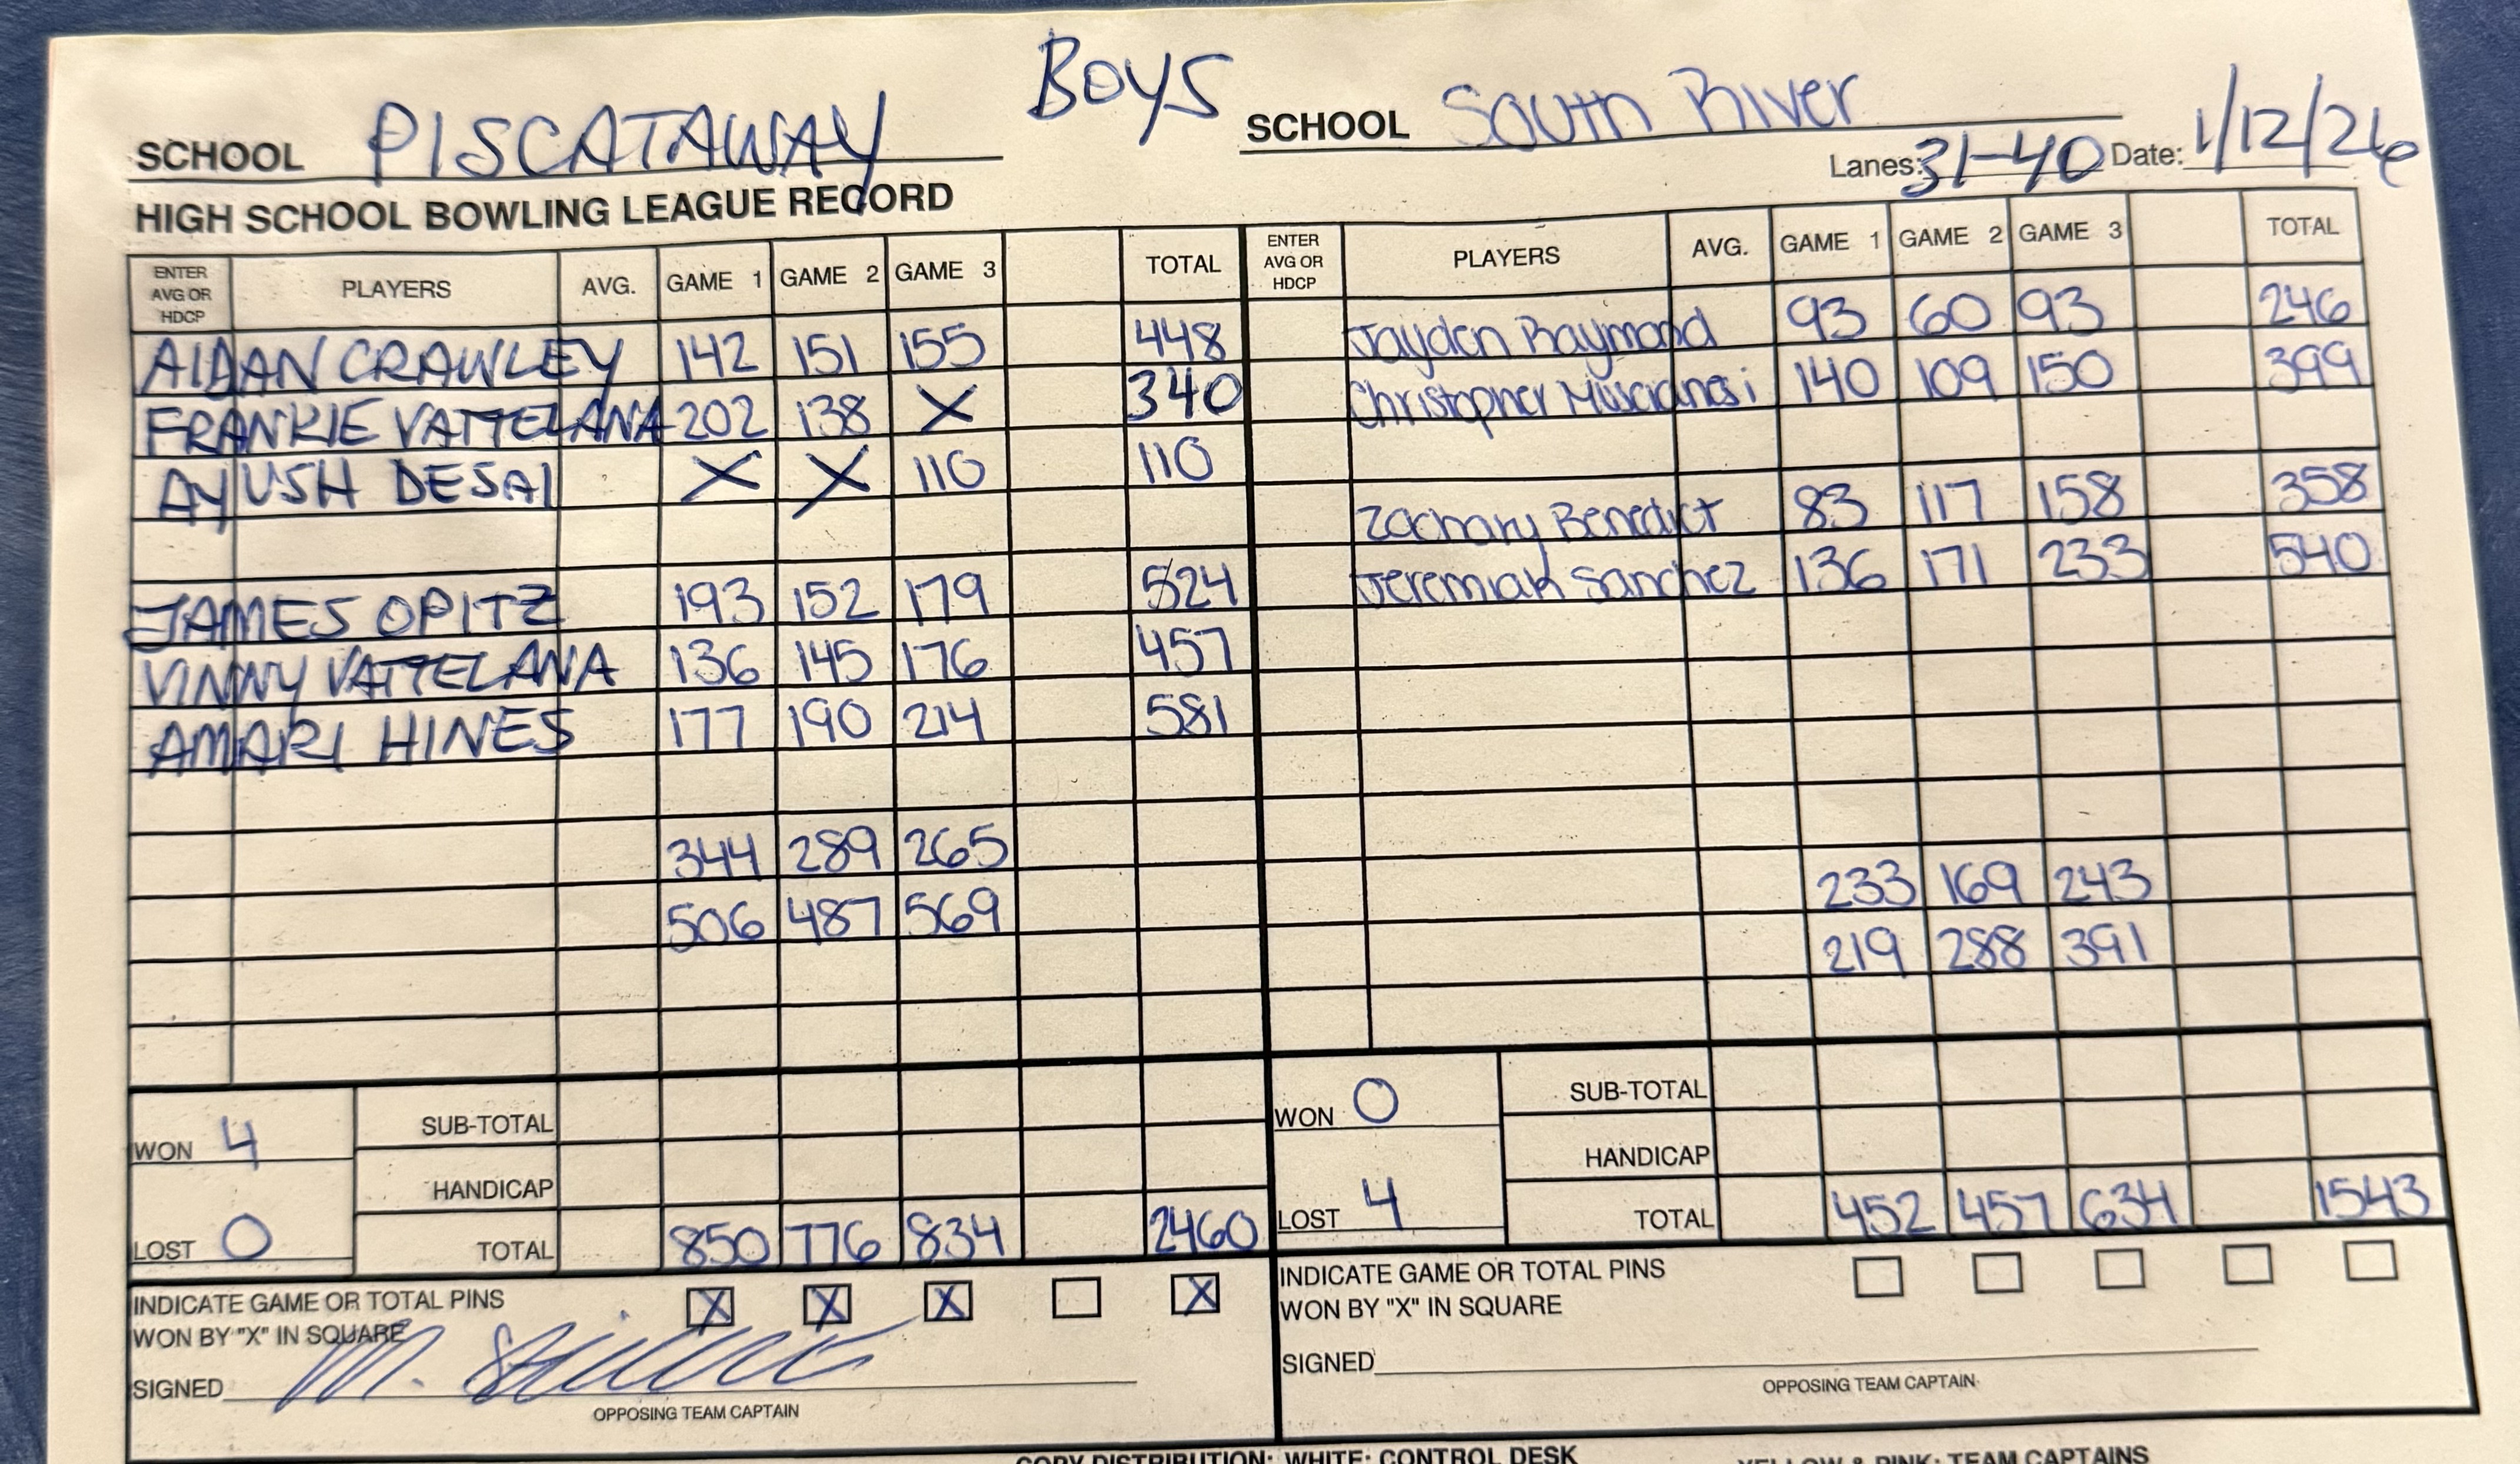 Boys
SCHOOL PISCATAWAY SCHOOL South River
Lanes: 31-40 Date: 1/12/26
HIGH SCHOOL BOWLING LEAGUE RECORD
ENTER AVG OR HDCP PLAYERS AVG. GAME 1 GAME 2 GAME 3 TOTAL ENTER AVG OR HDCP PLAYERS AVG. GAME 1 GAME 2 GAME 3 TOTAL
AIDAN CRAWLEY 142 151 155 448 Jayden Raymond 93 60 93 246
FRANKIE VATTELANA 202 138 X 340 Christopher 140 109 150 399
AYUSH DESAI X X 110 110
Zachary Benedict 83 117 158 358
JAMES OPITZ 193 152 179 524 Jeremiah Sanchez 136 171 233 540
VINNY VATTELANA 136 145 176 457
AMARI HINES 177 190 214 581
344 289 265 233 169 243
506 487 569 219 288 391
WON 4 SUB-TOTAL WON 0 SUB-TOTAL
HANDICAP HANDICAP
LOST 0 TOTAL 850 776 834 2460 LOST 4 TOTAL 452 457 634 1543
INDICATE GAME OR TOTAL PINS X X X X INDICATE GAME OR TOTAL PINS
WON BY "X" IN SQUARE WON BY "X" IN SQUARE
SIGNED M. SIGNED
OPPOSING TEAM CAPTAIN OPPOSING TEAM CAPTAIN
COPY DISTRIBUTION: WHITE: CONTROL DESK YELLOW & PINK: TEAM CAPTAINS